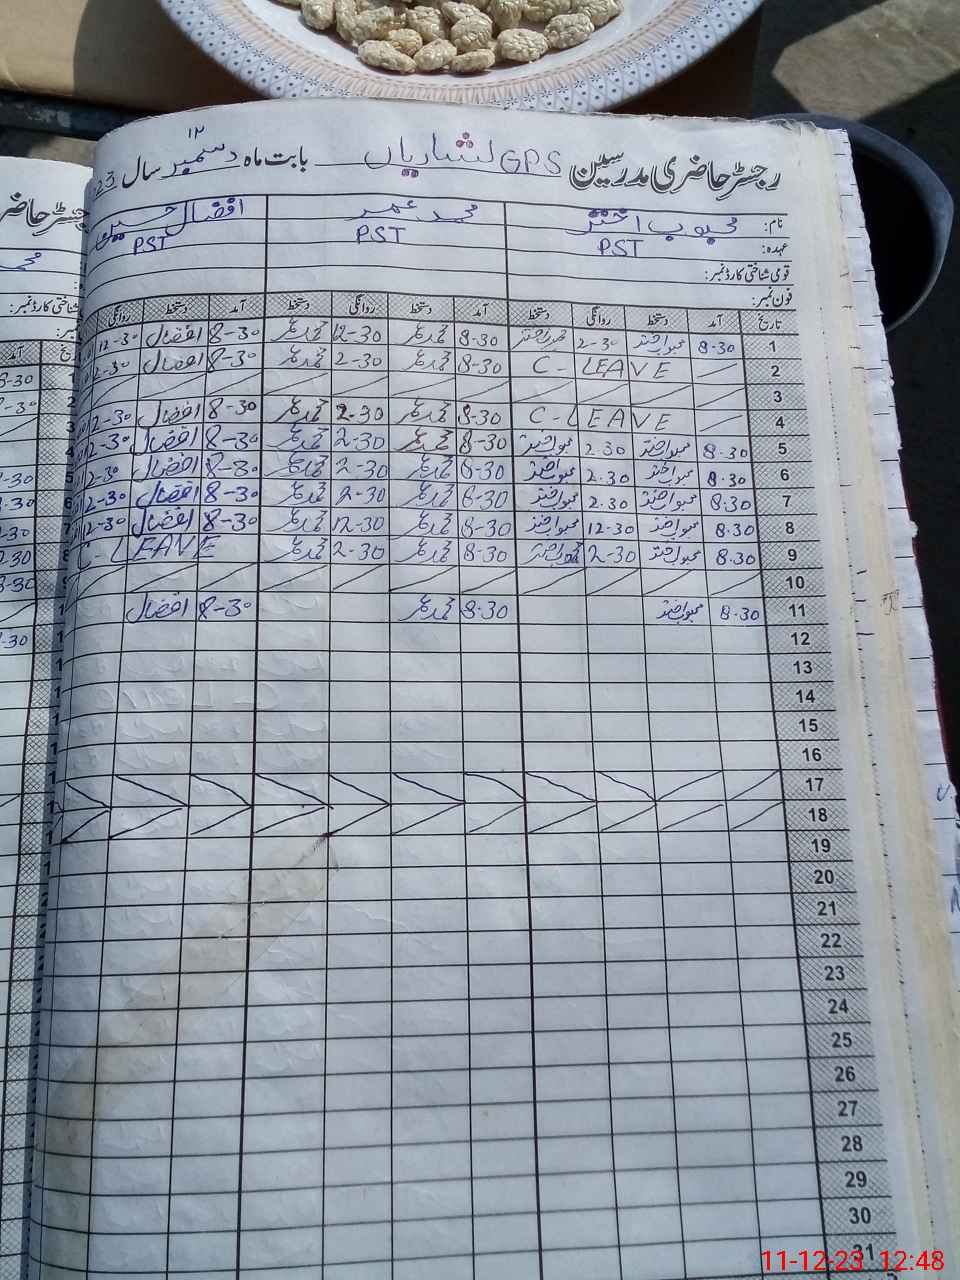 رجسٹر حاضری مدرسین GPS لشاریاں بابت ماہ دسمبر ۱۲ سال 23
نام: محبوب اختر محمد عمر افضال حسین
عہدہ: PST PST PST
قومی شناختی کارڈ نمبر:
فون نمبر:
تاریخ آمد دستخط روانگی دستخط آمد دستخط روانگی دستخط آمد دستخط روانگی
1 8-30 محبوب اختر 2-30 محبوب اختر 8-30 محمد عمر 12-30 محمد عمر 8-30 افضال 12-30
2 C-LEAVE 8-30 محمد عمر 2-30 محمد عمر 8-30 افضال 2-30
3
4 C-LEAVE 8-30 محمد عمر 2-30 محمد عمر 8-30 افضال 2-30
5 8-30 محبوب اختر 2.30 محبوب اختر 8-30 محمد عمر 2-30 محمد عمر 8-30 افضال 2-30
6 8-30 محبوب اختر 2.30 محبوب اختر 8-30 محمد عمر 2-30 محمد عمر 8-30 افضال 2-30
7 8-30 محبوب اختر 2.30 محبوب اختر 8-30 محمد عمر 2-30 محمد عمر 8-30 افضال 2-30
8 8-30 محبوب اختر 12-30 محبوب اختر 8-30 محمد عمر 12-30 محمد عمر 8-30 افضال 12-30
9 8.30 محبوب اختر 2-30 محبوب اختر 8-30 محمد عمر 2-30 محمد عمر C-LEAVE
10
11 8-30 محبوب اختر 8-30 محمد عمر 8-30 افضال
12
13
14
15
16
17
18
19
20
21
22
23
24
25
26
27
28
29
30
31
11-12-23 12:48